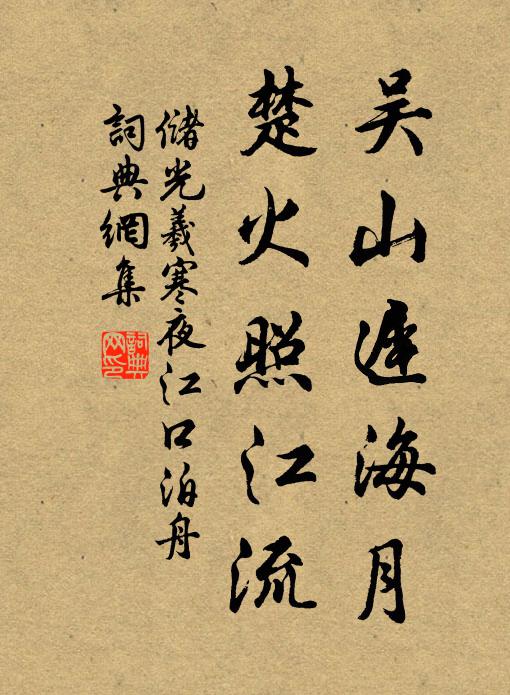 吴山遲海月
楚火照江流
儲光羲寒夜江口泊舟
詞典網集
詞典网印